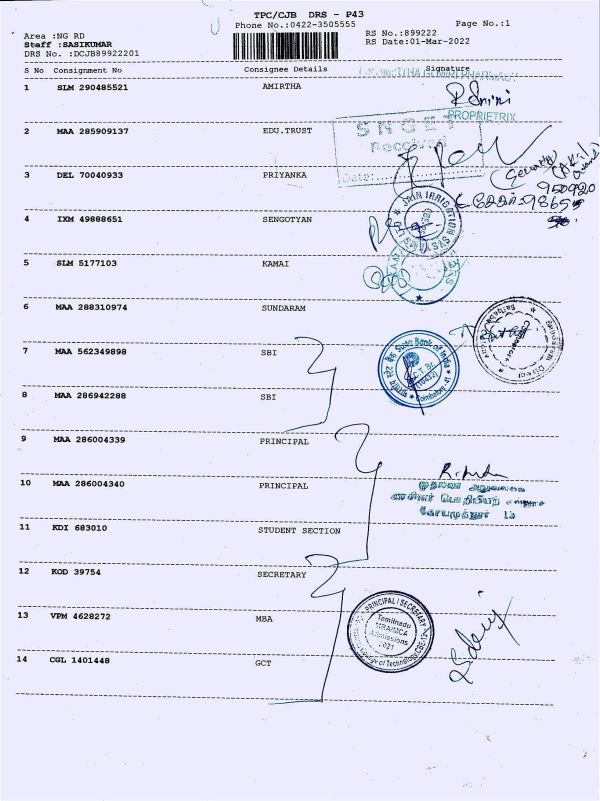 TPC/CJB DRS - P43
Phone No.:0422-3505555 Page No.:1
Area :NG RD RS No.:899222
Staff :SASIKUMAR RS Date:01-Mar-2022
DRS No. :DCJB89922201
S No Consignment No Consignee Details Signature
1 SLM 290485521 AMIRTHA
PROPRIETRIX
2 MAA 285909137 EDU.TRUST
Received
Date:
3 DEL 70040933 PRIYANKA
4 IXM 49888651 SENGOTYAN
JAIN IRRIGATION SYSTEMS LTD
5 SLM 5177103 KAMAI
6 MAA 288310974 SUNDARAM
7 MAA 562349898 SBI
State Bank of India
8 MAA 286942288 SBI
9 MAA 286004339 PRINCIPAL
10 MAA 286004340 PRINCIPAL
11 KDI 683010 STUDENT SECTION
12 KOD 39754 SECRETARY
13 VPM 4628272 MBA
PRINCIPAL / SECRETARY
Tamilnadu
MBA/MCA
Admissions
2021
14 CGL 1401448 GCT